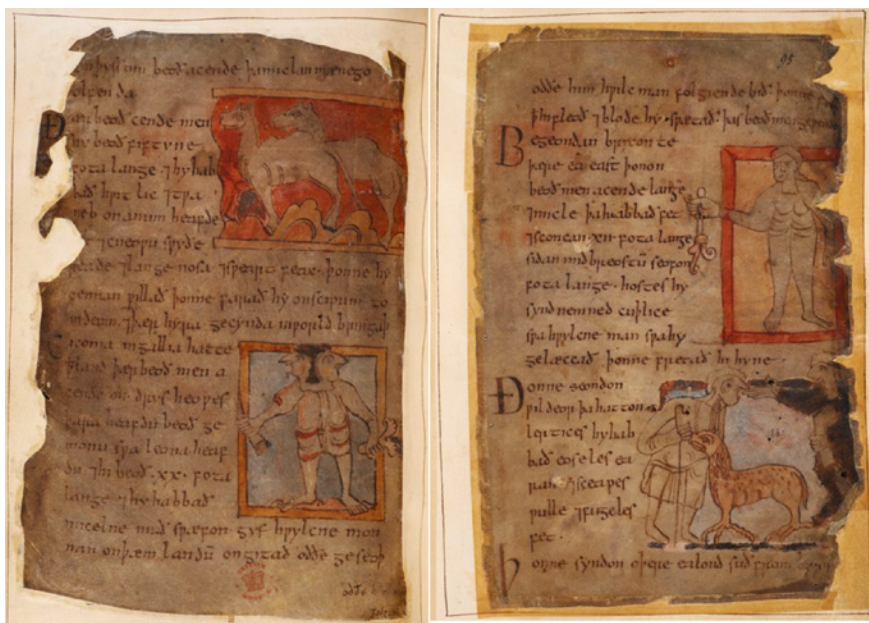 on þyssum beoð acende þa miclan mænego
olfenda
cende men
hy beoð fiftyne
fota lange ⁊ hy hab
bað hƿit lic ⁊ tƿa
neb on anum heafde
⁊ cneoƿu sƿyðe
reade ⁊ lange nosa ⁊ sƿeart feax · þonne hy
cennan ƿillað þonne farað hy on scipum to
indeum ⁊ þær hyra gecynda in ƿorld bringaþ
iconia in gallia hatte
ꝥ land þær beoð men a
cende on drys heoƿes
þara heafdu beoð ge
monu sƿa leona heaf
du ⁊ hi beoð .xx. fota
lange ⁊ hy habbað
micelne muð sƿa fon · gyf hƿylcne mon
nan on þæm landū ongitað oððe geseoþ
oððe
95
oððe him hƿilc man folgiende bið þonne
fleoð ⁊ blode hy sƿætað · þas beoð men
Begeondan brixonte
þære ea east þonon
beoð men acende lange
⁊ micle þa habbað fet
⁊ sconcan ·xii· fota lange
sidan mid breostū seofon
fota lange · hostes hy
synd nemned cuþlice
sƿa hƿylcne man sƿa hy
gelæccað þonne fretað hi hyne ·
Ðonne seondon
ƿildeor þa hatton
lertices hy hab
bað eoseles ea
ran ⁊ sceapes
ƿulle ⁊ fugeles
fet ·
onne syndon oþere ealond suð fram